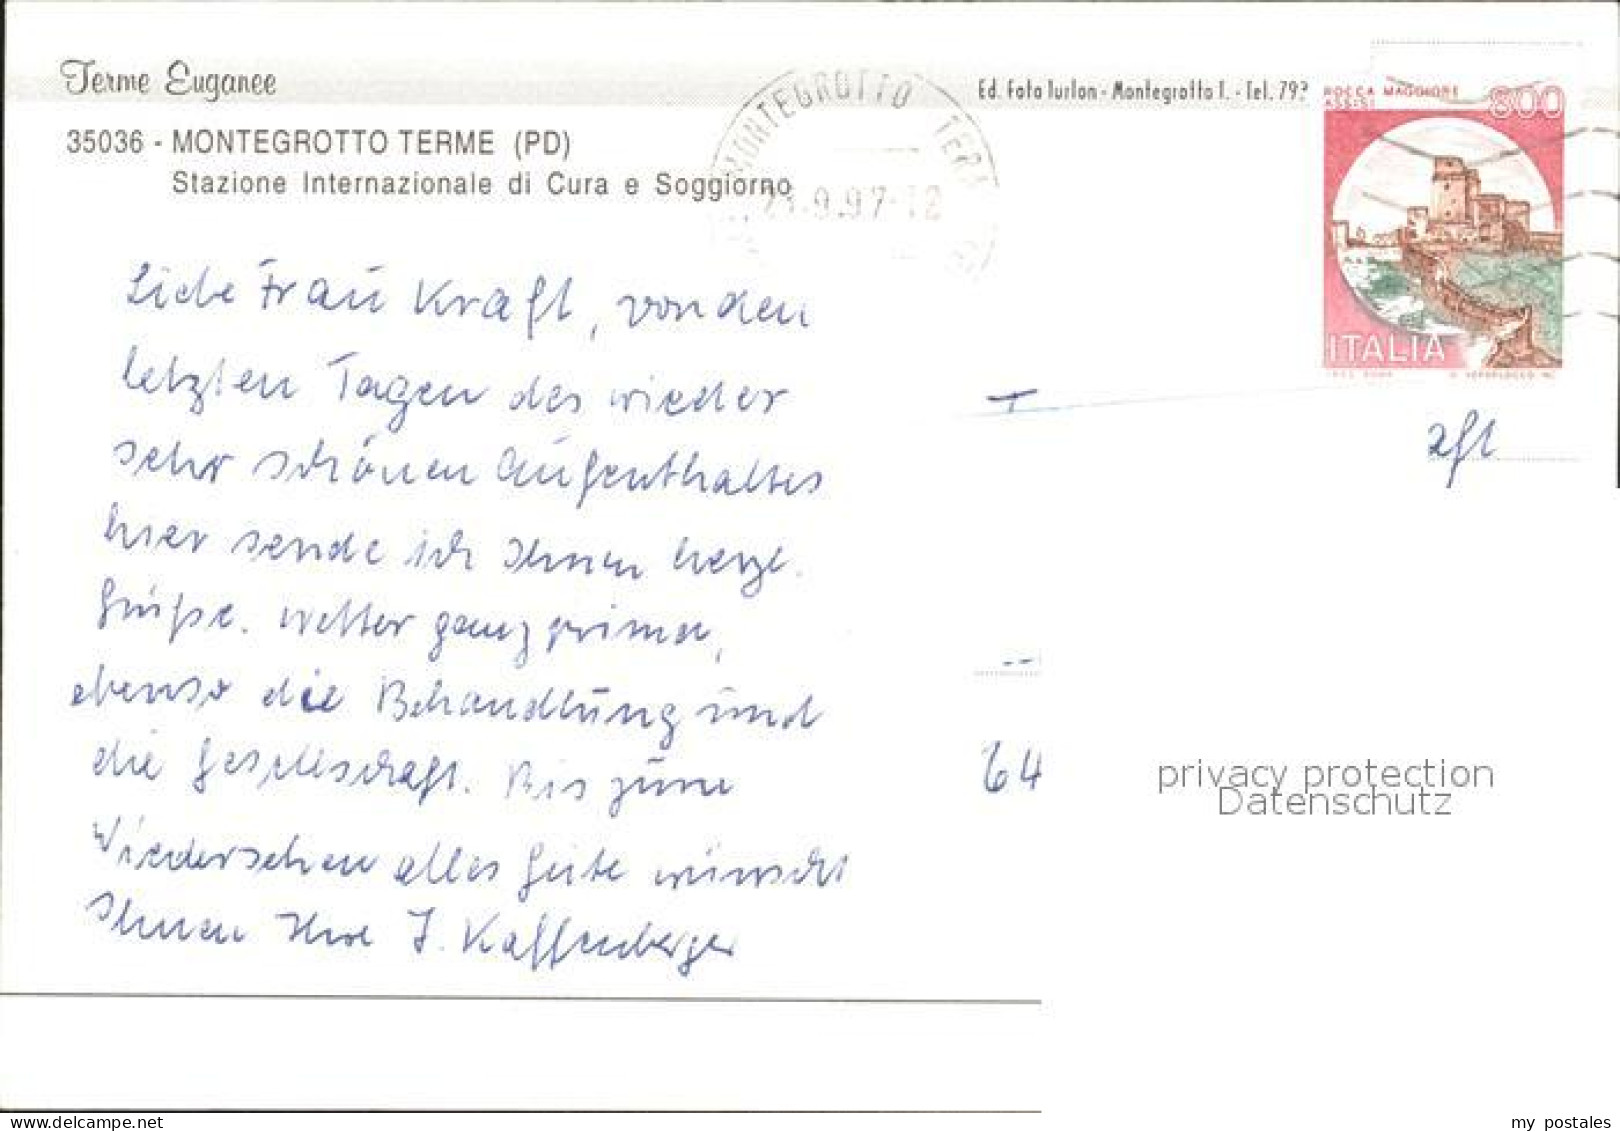 Terme Euganee
Ed. Foto Turlon - Montegrotto T. - Tel. 793
35036 - MONTEGROTTO TERME (PD)
Stazione Internazionale di Cura e Soggiorno
MONTEGROTTO TERME
21.9.97-12
ROCCA MAGGIORE
ASSISI
800
ITALIA
Liebe Frau Kraft, von den
letzten Tagen des wieder
sehr schönen Aufenthaltes
hier sende ich Ihnen herzl.
Grüße. Wetter ganz prima,
ebenso die Behandlung und
die Gesellschaft. Bis zum
Wiedersehen alles Gute wünscht
Ihnen Ihre J. Kaffenberger
aft
64
privacy protection
Datenschutz
my postales